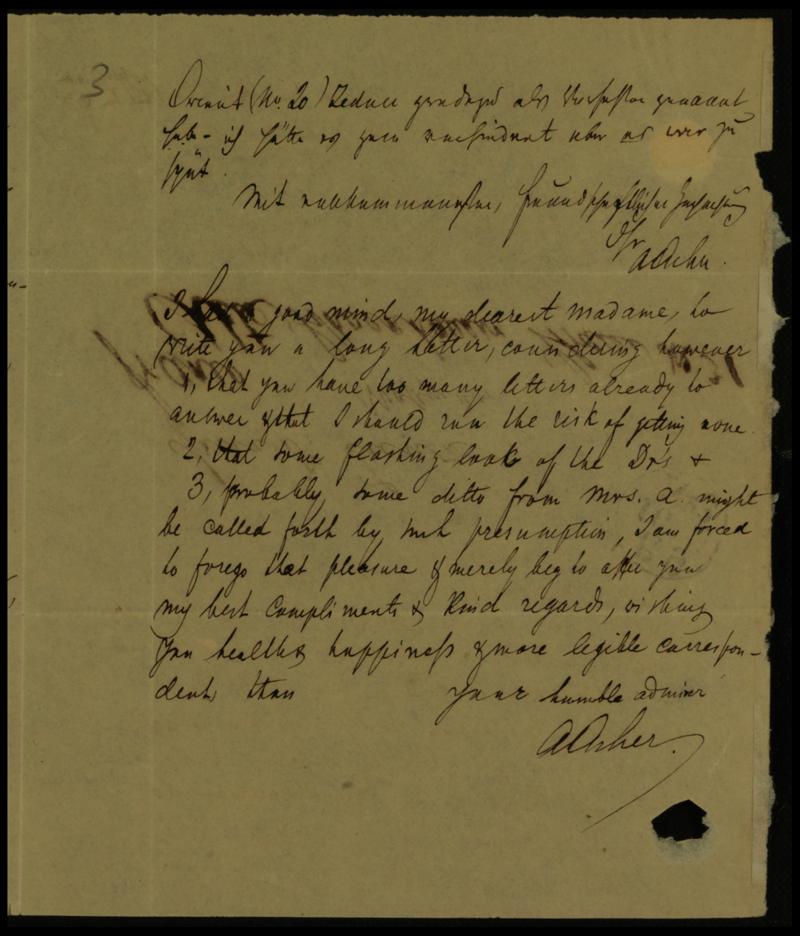 3
Orient (No. 20) Zedner geradezu als Verfasser genannt
habe - ich hätte es gern verhindert aber es war zu
spät.
Mit vollkommenster, freundschaftlicher Hochachtung
Ihr
A Asher.
I have a good mind, my dearest madame, to
write you a long letter, considering however
1, that you have too many letters already to
answer & that I should run the risk of getting none
2, that some flashing look of the Drs &
3, probably some ditto from Mrs. A. might
be called forth by such presumption, I am forced
to forego that pleasure & merely beg to offer you
my best compliments & kind regards, wishing
you health & happiness & more legible correspon-
dents than your humble admirer
A Asher.